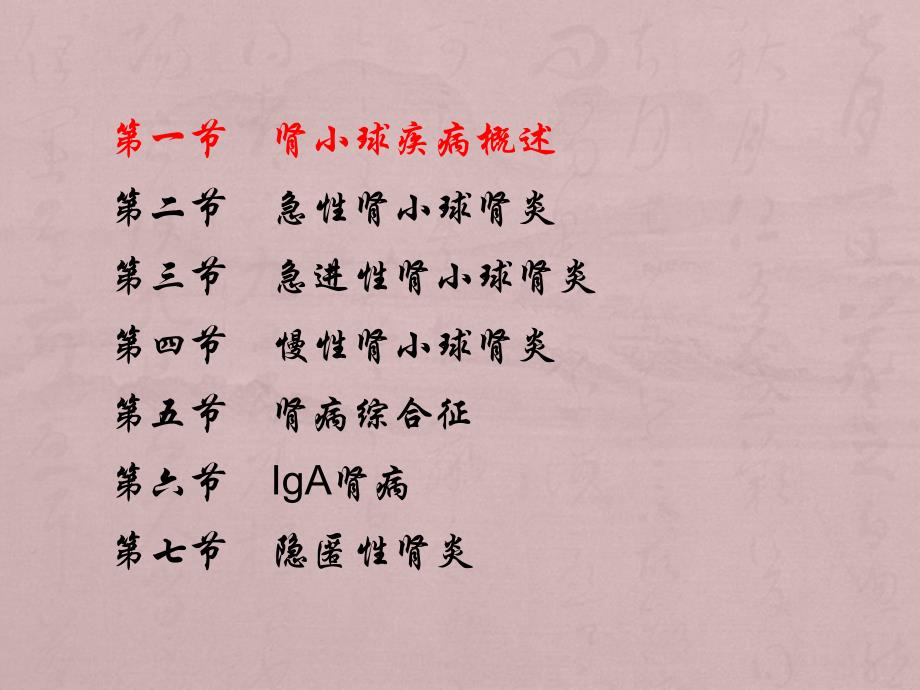 第一节 肾小球疾病概述
第二节 急性肾小球肾炎
第三节 急进性肾小球肾炎
第四节 慢性肾小球肾炎
第五节 肾病综合征
第六节 IgA肾病
第七节 隐匿性肾炎